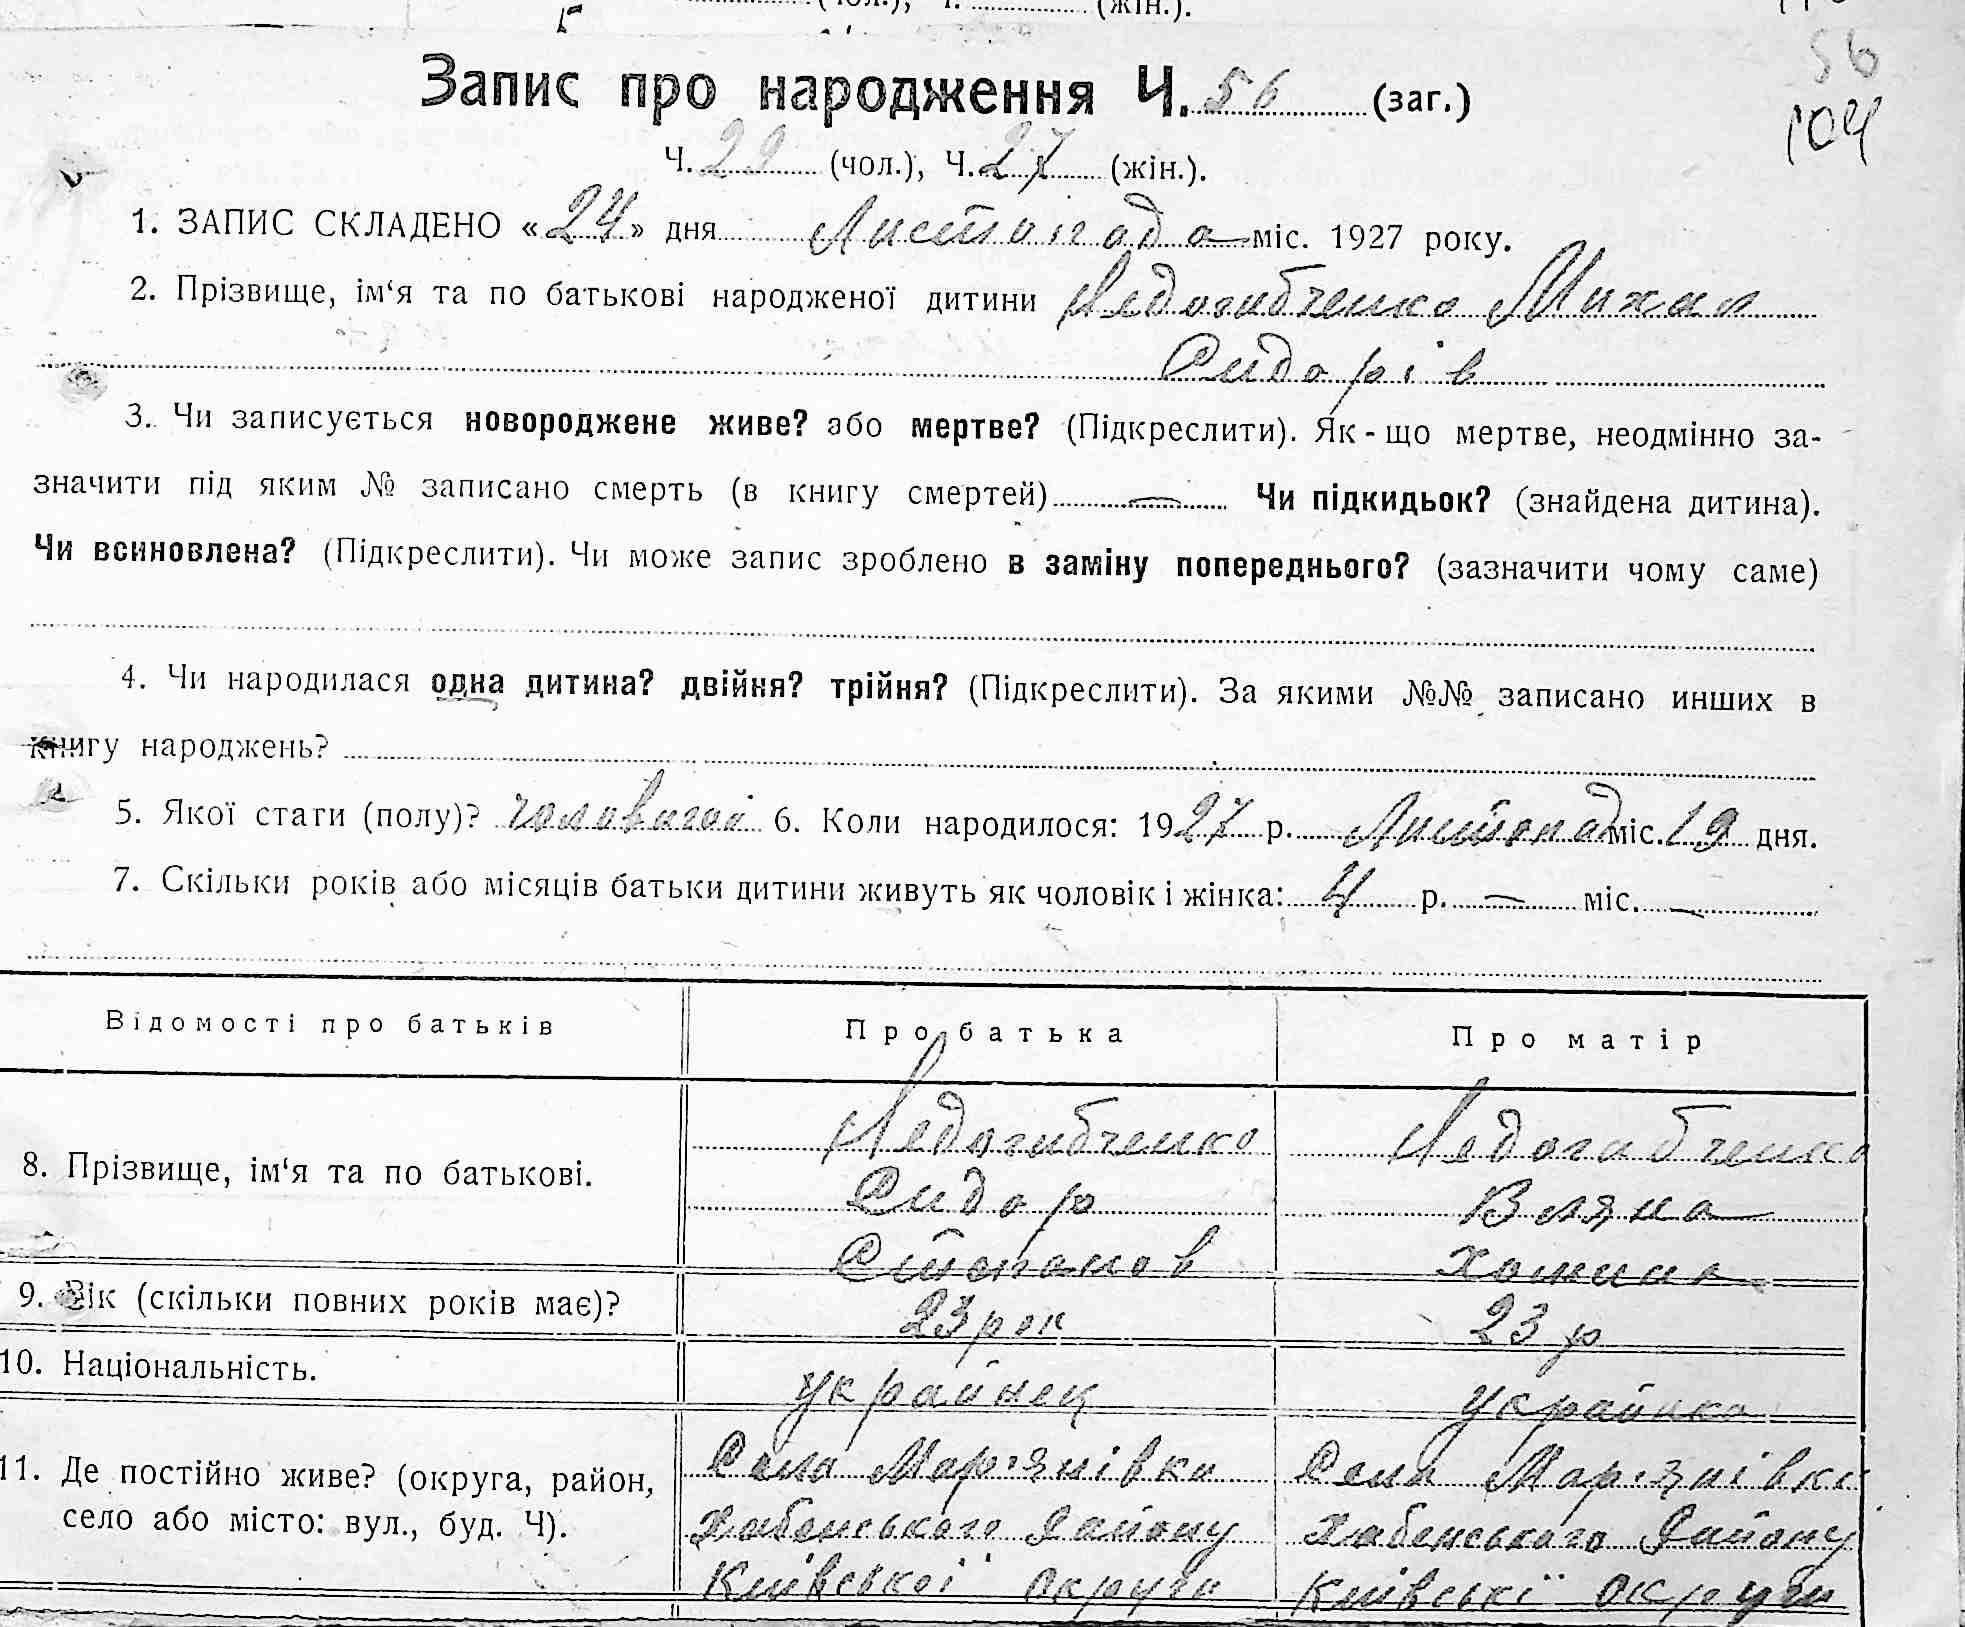 (чол.), Ч. (жін.).
56
Запис про народження Ч. 56 (заг.)
104
Ч. 29 (чол.), Ч. 27 (жін.).
1. ЗАПИС СКЛАДЕНО «24» дня Листопада міс. 1927 року.
2. Прізвище, ім‘я та по батькові народженої дитини Недогибченко Михал
Сидорів
3. Чи записується новороджене живе? або мертве? (Підкреслити). Як-що мертве, неодмінно за-
значити під яким № записано смерть (в книгу смертей) — Чи підкидьок? (знайдена дитина).
Чи всиновлена? (Підкреслити). Чи може запис зроблено в заміну попереднього? (зазначити чому саме)
4. Чи народилася одна дитина? двійня? трійня? (Підкреслити). За якими №№ записано инших в
книгу народжень?
5. Якої стаги (полу)? чоловичой 6. Коли народилося: 1927 р. Листопад міс. 19 дня.
7. Скільки років або місяців батьки дитини живуть як чоловік і жінка: 4 р. — міс. —
Відомості про батьків Про батька Про матір
8. Прізвище, ім‘я та по батькові. Недогибченко Недогибченко
Сидор Вляна
Степанов Хомина
9. Вік (скільки повних років має)? 23 рок 23 р
10. Національність. украйнец украинка
11. Де постійно живе? (округа, район, село або місто: вул., буд. Ч). Села Мар'янівки Села Мар'янівки
Хабенського Району Хабенського Району
Київської округи Київські округи